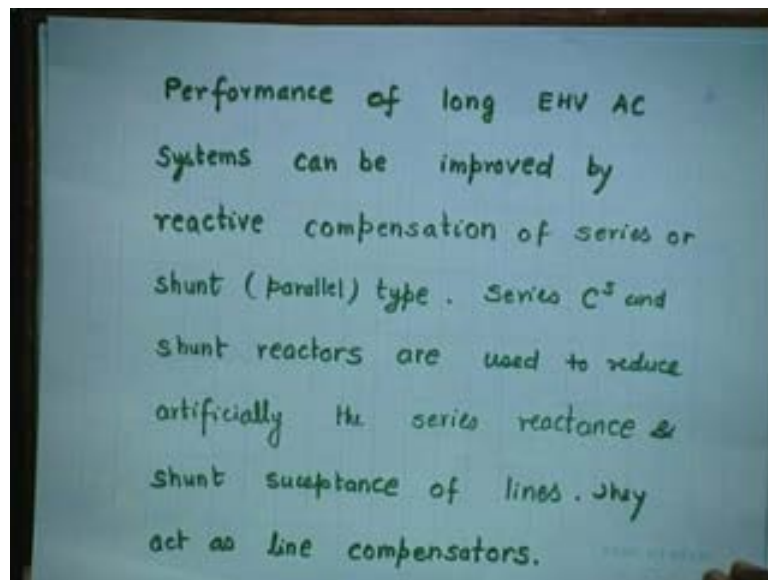 Performance of long EHV AC
Systems can be improved by
reactive compensation of series or
shunt (parallel) type. Series Cˢ and
shunt reactors are used to reduce
artificially the series reactance &
shunt suceptance of lines. They
act as line compensators.